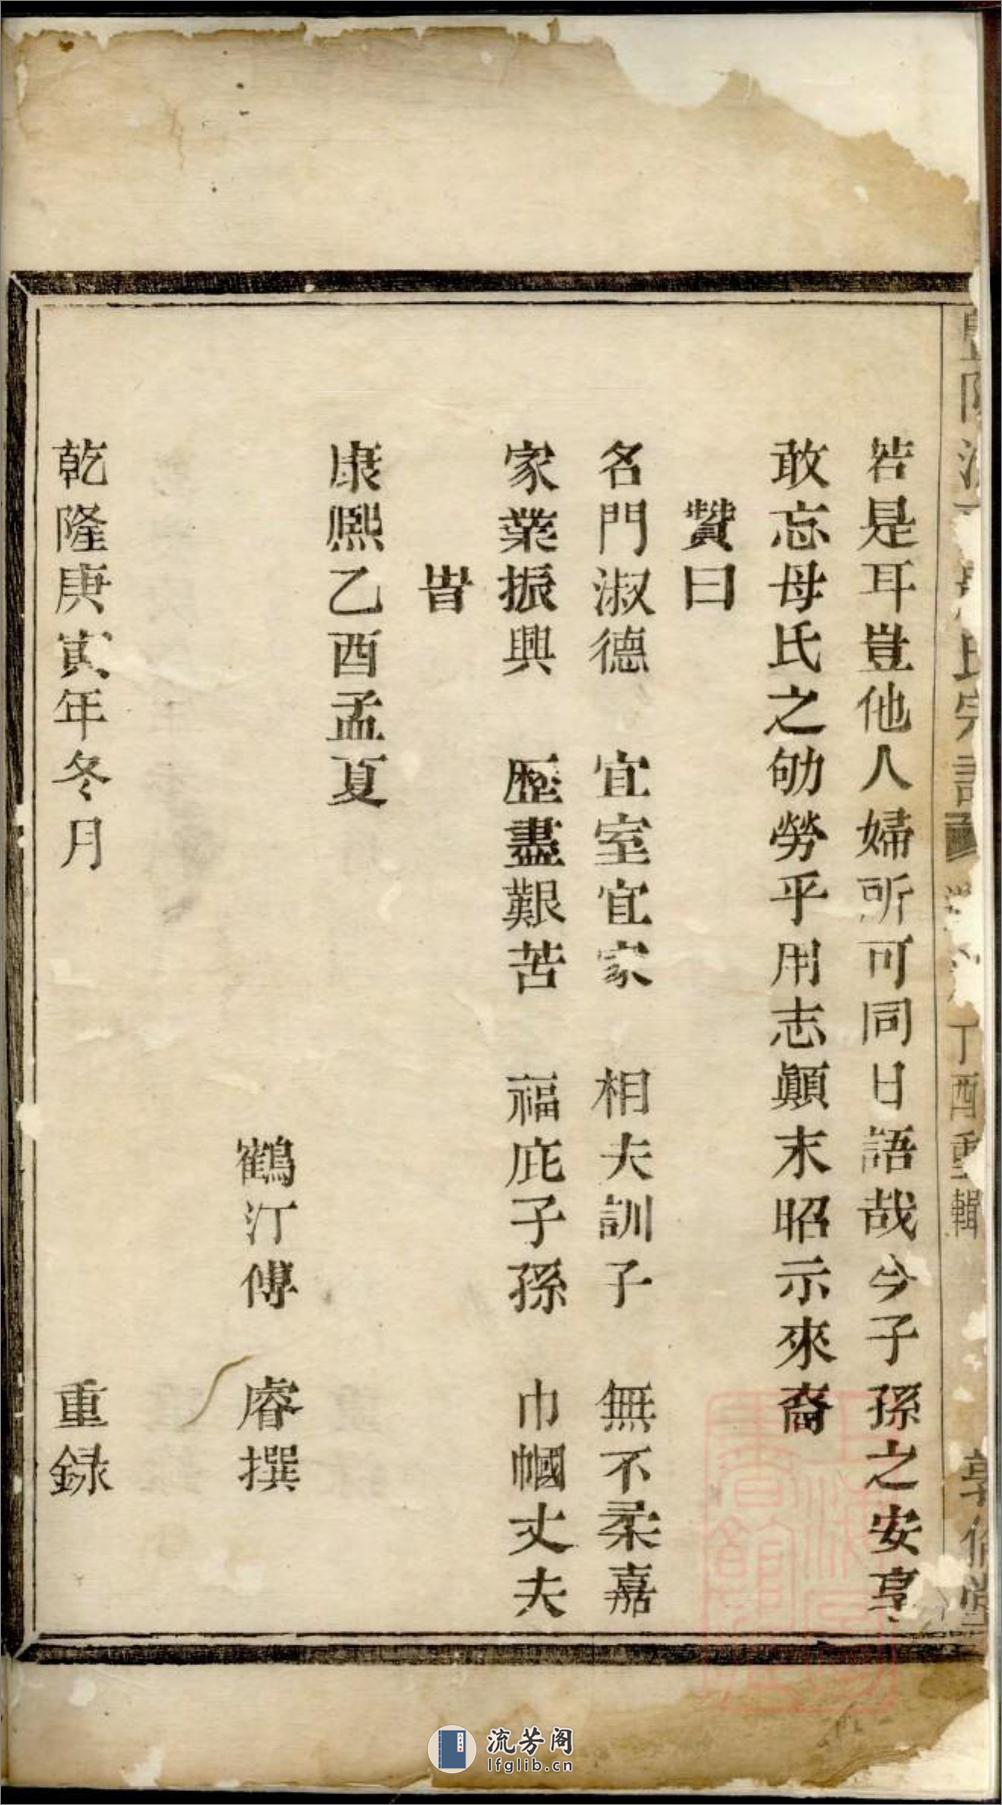 若是耳豈他人婦所可同日語哉今子孫之安享
敢忘母氏之劬勞乎用志顛末昭示來裔
贊曰
名門淑德 宜室宜家 相夫訓子 無不柔嘉
家業振興 歷盡艱苦 福庇子孫 巾幗丈夫
旹
康熙乙酉孟夏
鶴汀傅 睿撰
乾隆庚寅年冬月 重録
氏宗譜 丁酉重輯 敦倫堂
流芳阁
lfglib.cn